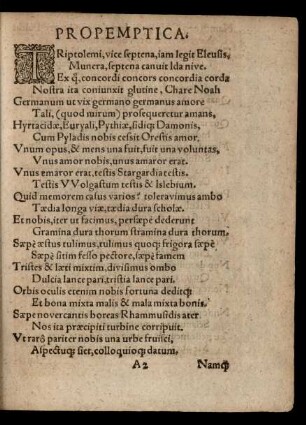 PROPEMPTICA.
TRiptolemi, vice septena, iam legit Eleusis,
Munera, septena canuit Ida nive.
Ex q̃, concordi concors concordia corda
Nostra ita coniunxit glutine, Chare Noah
Germanum ut vix germano germanus amore
Tali, (quod mirum) prosequeretur amans,
Hyrtacidæ, Euryali, Pythiæ, fidiqi Damonis,
Cum Pyladis nobis cessit Orestis amor.
Vnum opus, & mens una fuit, fuit una voluntas,
Vnus amor nobis, unus amaror erat.
Vnus emaror erat, testis Stargardia testis.
Testis VVolgastum testis & Islebium.
Quid memorem casus varios? toleravimus ambo
Tædia longa viæ, tædia dura scholæ.
Et nobis, iter ut facimus, persæpè dederunt
Gramina dura thorum stramina dura thorum.
Sæpè æstus tulimus, tulimus quoqȝ frigora sæpè
Sæpè sitim fesso pectore, sæpè famem
Tristes & læti mixtim, divisimus ambo
Dulcia lance pari, tristia lance pari.
Orbis oculis etenim nobis fortuna deditqȝ
Et bona mixta malis & mala mixta bonis.
Sæpe novercantis boreas Rhammusidis ater
Nos ita præcipiti turbine corripuit.
Vt rarò pariter nobis una urbe fruisci,
Aspectuqȝ siet, colloquioqȝ datum.
A2 Namqȝ